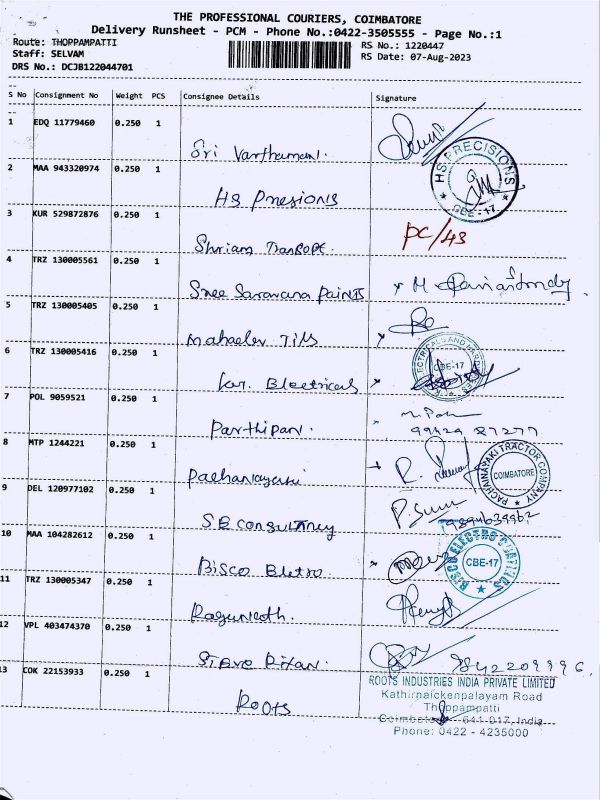 THE PROFESSIONAL COURIERS, COIMBATORE
Delivery Runsheet - PCM - Phone No.:0422-3505555 - Page No.:1
Route: THOPPAMPATTI
Staff: SELVAM
DRS No.: DCJB122044701
RS No.: 1220447
RS Date: 07-Aug-2023
S No Consignment No Weight PCS Consignee Details Signature
1 EDQ 11779460 0.250 1
Sri Varthamani.
2 MAA 943320974 0.250 1
HS Presions
HS PRECISIONS
CBE-17
3 KUR 529872876 0.250 1
Shriam Transopt.
PC/43
4 TRZ 130005561 0.250 1
Sree Saravana Paints
5 TRZ 130005405 0.250 1
Mahadev Tills
6 TRZ 130005416 0.250 1
Electricals
CBE-17
7 POL 9059521 0.250 1
Parthipan.
8 MTP 1244221 0.250 1
PACHAINAYAKI TRACTOR COMPANY
COIMBATORE
9 DEL 120977102 0.250 1
SB Consultncy
10 MAA 104282612 0.250 1
Bisco Eletro
CBE-17
11 TRZ 130005347 0.250 1
Ragunath.
12 VPL 403474370 0.250 1
9842209996.
13 COK 22153933 0.250 1
Roots
ROOTS INDUSTRIES INDIA PRIVATE LIMITED
Kathirnaickenpalayam Road
Thoppampatti
Coimbatore - 641 017, India
Phone: 0422 - 4235000